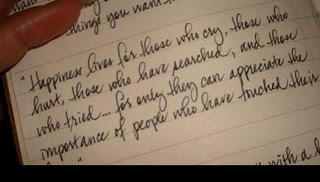 things you want
"Happiness lives for those who cry, those who
hurt, those who have searched, and those
who tried... for only they can appreciate the
importance of people who have touched their
with a